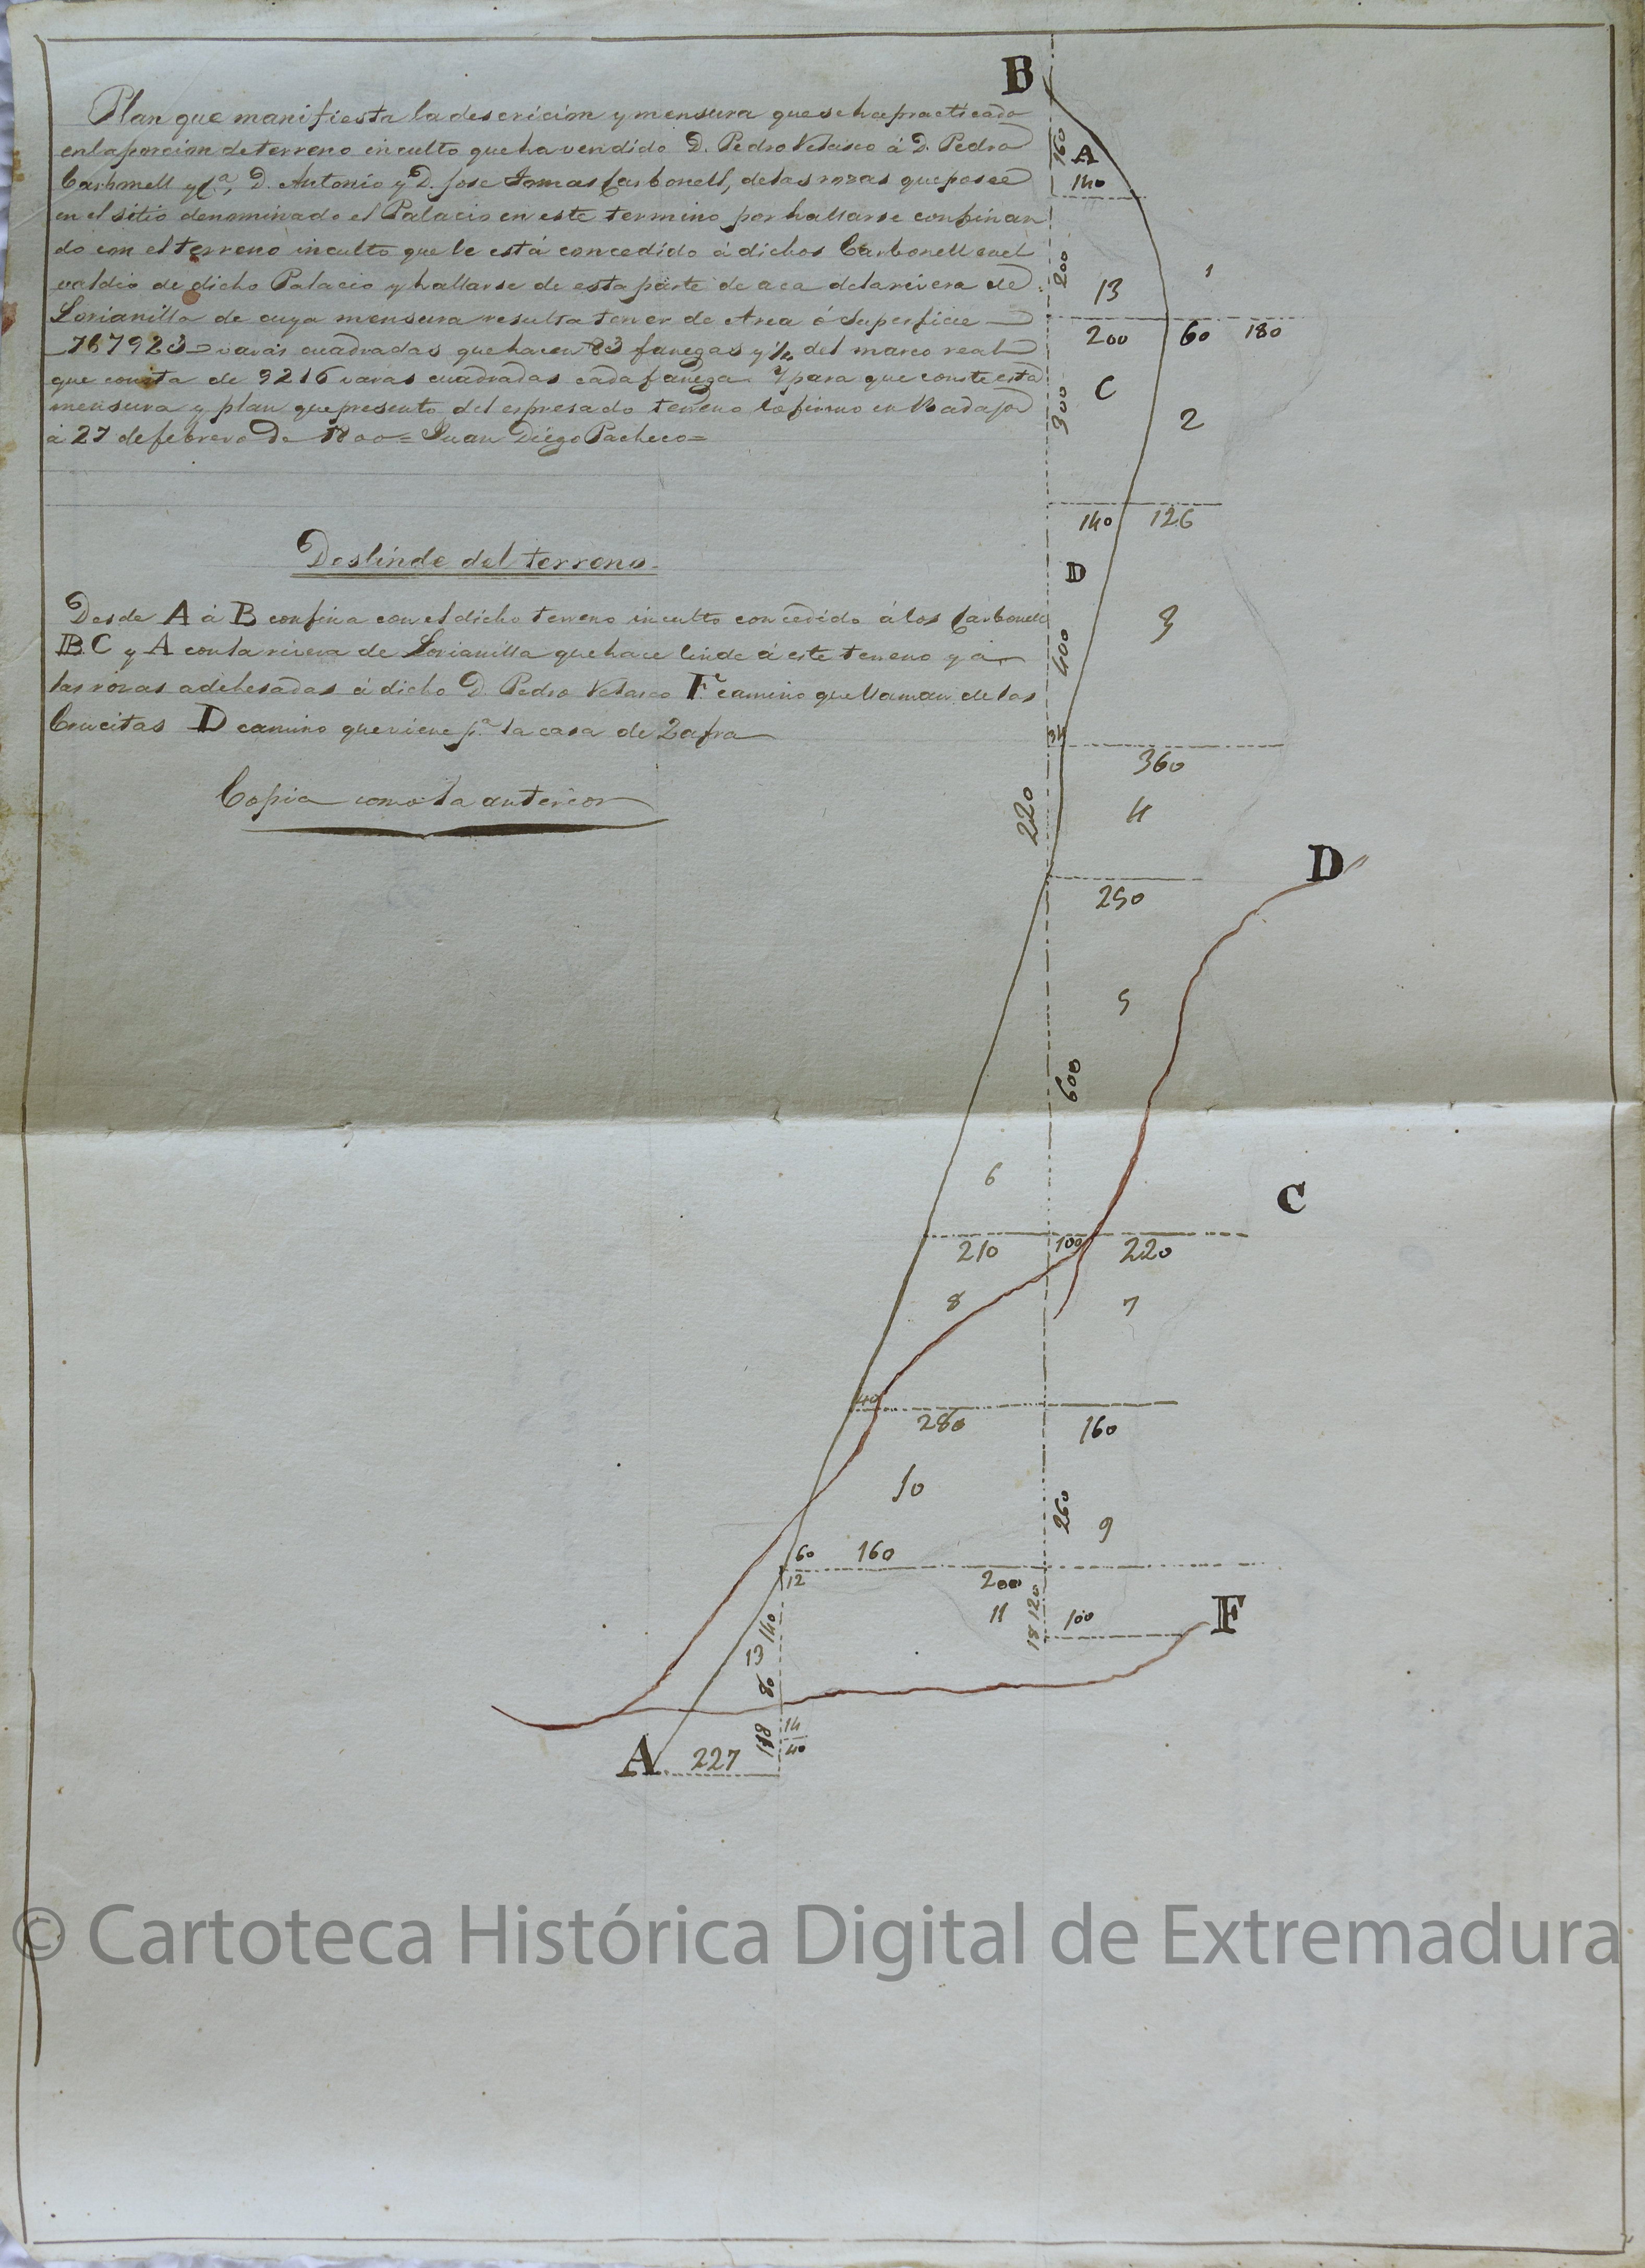 B
Plan que manifiesta la descricion y mensura que se ha practicado
en la porcion de terreno inculto que ha vendido D. Pedro Velasco á D. Pedro
Carbonell y C.ª, D. Antonio y D. Jose Tomas Carbonell, de las rozas que posee
en el sitio denominado el Palacio en este termino por hallarse confinan
do con el terreno inculto que le está concedido á dichos Carbonell en el
valdio de dicho Palacio y hallarse de esta parte de aca de la rivera de
Lorianilla de cuya mensura resulta tener de Area ó Superficie
767923 varas cuadradas que hacen 83 fanegas y del marco real
que consta de 9216 varas cuadradas cada fanega. Y para que conste esta
mensura y plan que presento del espresado terreno lo firmo en Badajoz
á 27 de febrero de 1800 = Juan Diego Pacheco =
Deslinde del terreno
Desde A á B confina con el dicho terreno inculto concedido á los Carbonell
B.C y A con la rivera de Lorianilla que hace linde á este terreno y á
las rozas adehesadas á dicho D. Pedro Velasco F. camino que llaman de las
Crucitas D camino que viene p.ª la casa de Zafra
Copia como la anterior
160
A
140
200
13
1
200
60
180
300
C
2
140
126
D
400
3
360
220
4
D
250
5
600
6
C
210
100
220
8
7
40
280
160
10
260
9
60
160
12
200
11
18 120
100
F
140
13
80
118
14
40
A
227
© Cartoteca Histórica Digital de Extremadura